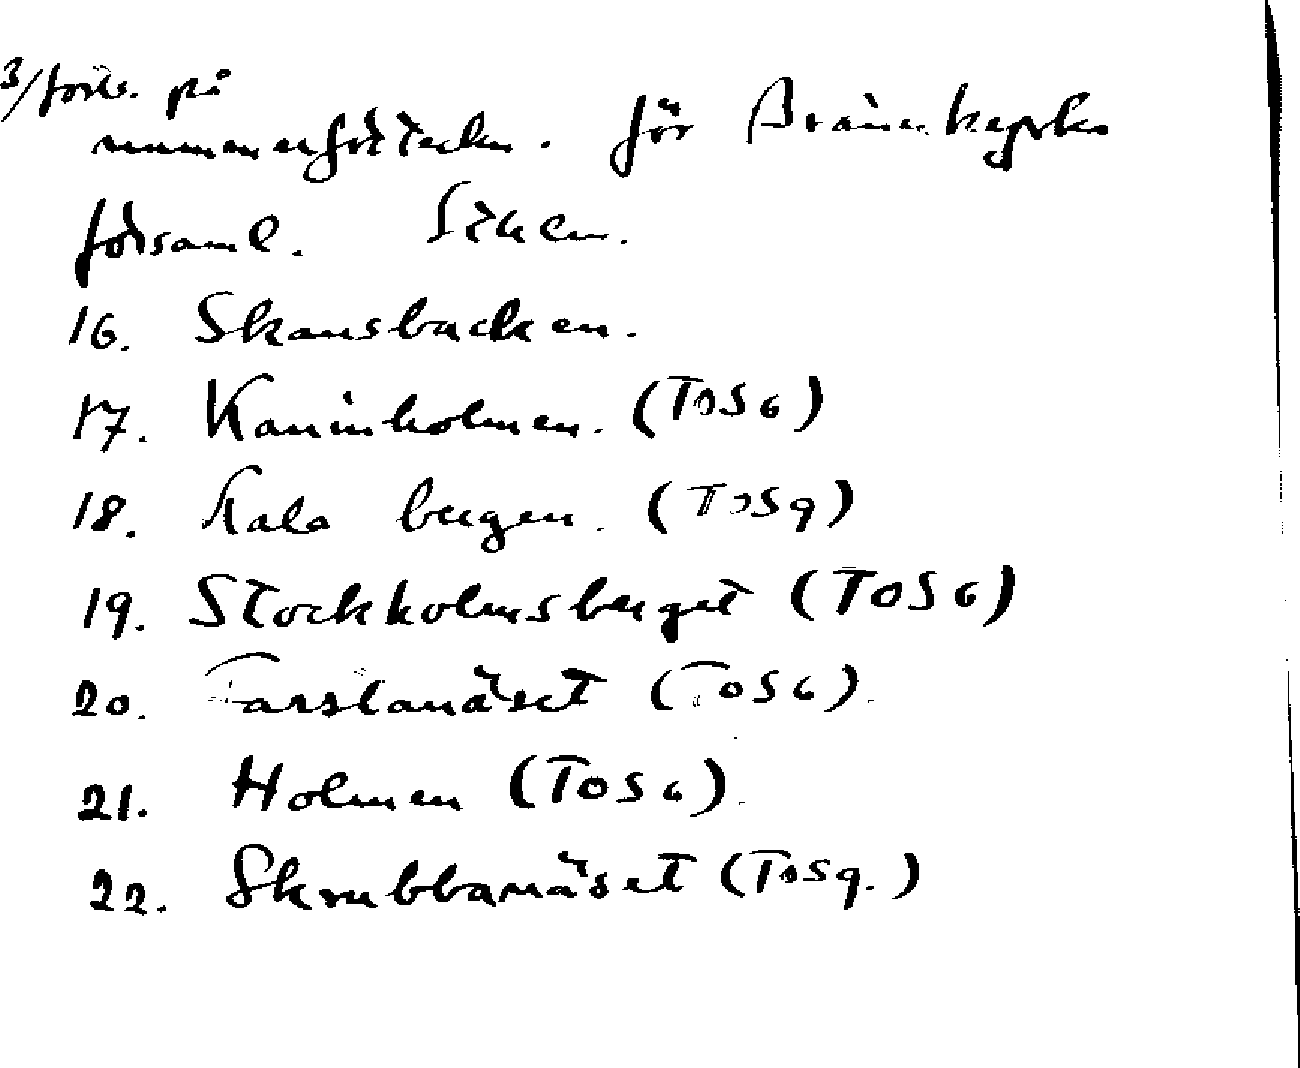 3/forts. på
nummerförteckn. för Brännkyrka
församl. Sthlm.
16. Skansbacken.
17. Kaninholmen. (TOS6)
18. Kala bergen. (TOS9)
19. Stockholmsberget (TOS6)
20. Farstanäset (TOS6).
21. Holmen (TOS6).
22. Skrubbanäset (TOS9.)